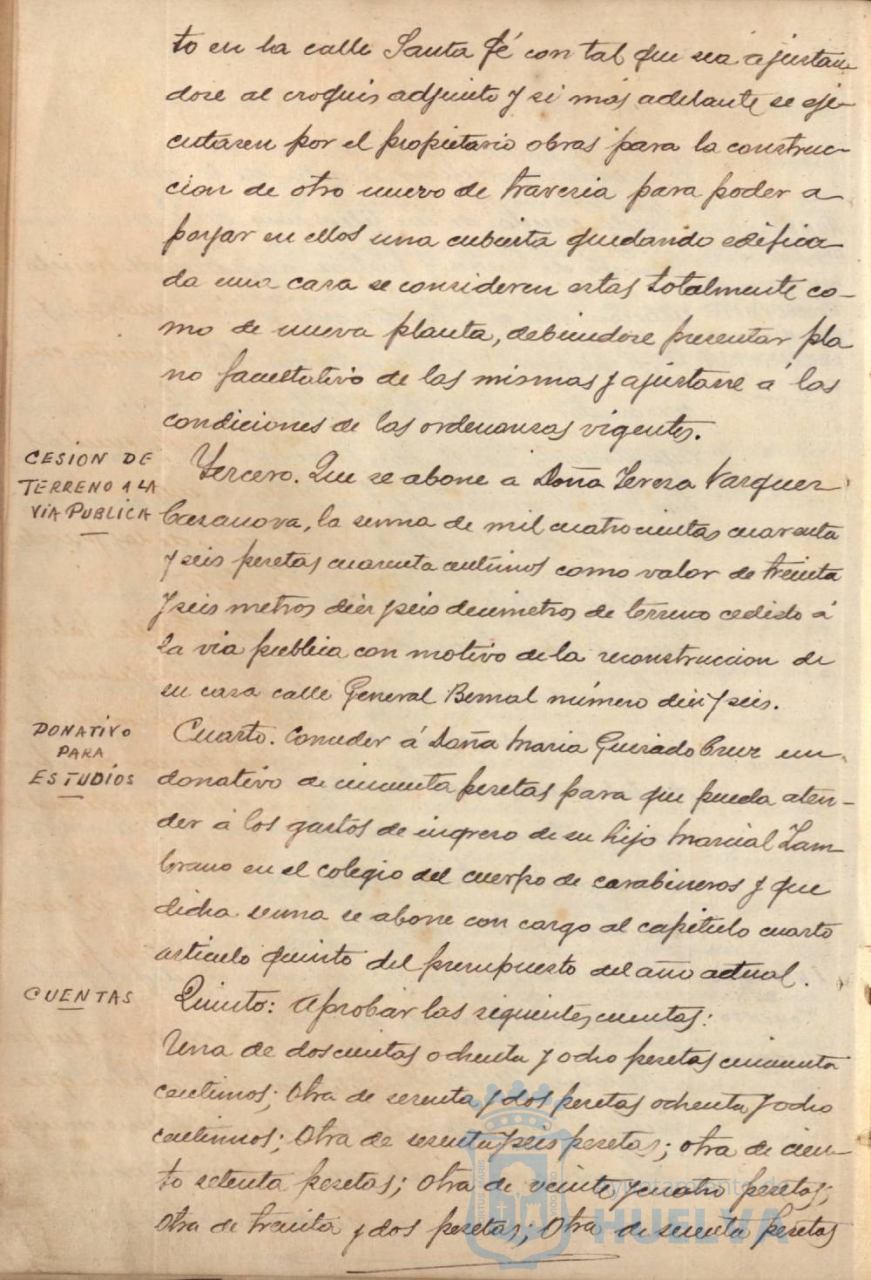 to en la calle Santa Fé con tal que sea ajustan
dose al croquis adjunto y si más adelante se eje-
cutasen por el propietario obras para la construc-
cion de otro nuevo de travesia para poder a
poyar en ellos una cubierta quedando edifica
da una casa se consideren estas totalmente co-
mo de nueva planta, debiendose presentar pla
no facultativo de las mismas y ajustarse á las
condiciones de las ordenanzas vigentes.
CESION DE
TERRENO A LA
VIA PUBLICA
Tercero. Que se abone á Doña Teresa Vazquez
Casanova, la suma de mil cuatrocientas cuarenta
y seis pesetas cuarenta centimos como valor de treinta
y seis metros diez y seis decimetros de terreno cedido á
la via publica con motivo de la reconstruccion de
su casa calle General Bernal número diez y seis.
DONATIVO
PARA
ESTUDIOS
Cuarto. Conceder á Doña Maria Guirado Cruz un
donativo de cincuenta pesetas para que pueda aten-
der á los gastos de ingreso de su hijo Marcial Zam
brano en el colegio del cuerpo de carabineros y que
dicha suma se abone con cargo al capitulo cuarto
articulo quinto del presupuesto del año actual.
CUENTAS
Quinto: Aprobar las siguientes cuentas:
Una de doscientas ochenta y ocho pesetas cincuenta
centimos; Otra de y dos pesetas ochenta y ocho
centimos; Otra de y seis pesetas; otra de cien-
to setenta pesetas; Otra de veinte y cuatro pesetas;
Otra de treinta y dos pesetas; Otra de pesetas
Ayuntamiento de
HUELVA